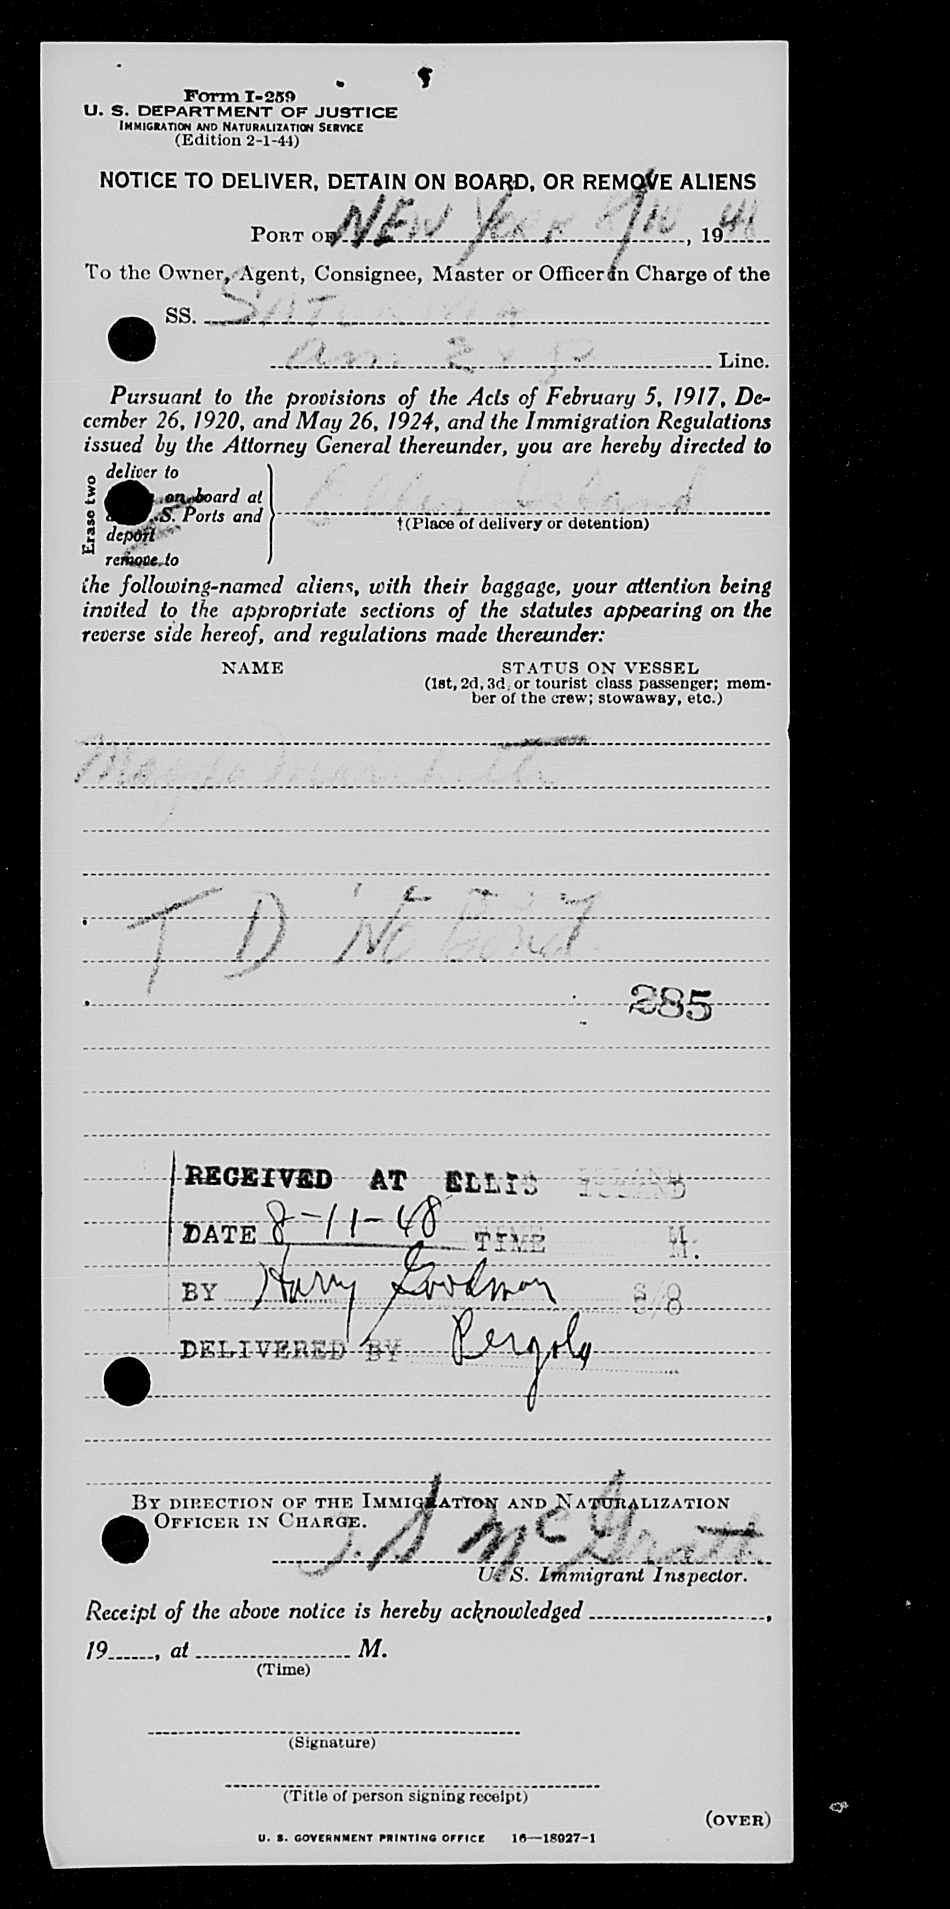 Form I-259
U. S. DEPARTMENT OF JUSTICE
IMMIGRATION AND NATURALIZATION SERVICE
(Edition 2-1-44)
NOTICE TO DELIVER, DETAIN ON BOARD, OR REMOVE ALIENS
PORT OF NEW York 8/10, 1948
To the Owner, Agent, Consignee, Master or Officer in Charge of the
SS. Saturnia
Am Exp Line.
Pursuant to the provisions of the Acts of February 5, 1917, De-
cember 26, 1920, and May 26, 1924, and the Immigration Regulations
issued by the Attorney General thereunder, you are hereby directed to
Erase two
deliver to
on board at
S. Ports and
deport
remove to
Ellis Island
†(Place of delivery or detention)
the following-named aliens, with their baggage, your attention being
invited to the appropriate sections of the statutes appearing on the
reverse side hereof, and regulations made thereunder:
NAME STATUS ON VESSEL
(1st, 2d, 3d, or tourist class passenger; mem-
ber of the crew; stowaway, etc.)
T D No Bond
285
RECEIVED AT ELLIS ISLAND
DATE 8-11-48 TIME M.
BY Harry Goodman
DELIVERED BY Pergola
BY DIRECTION OF THE IMMIGRATION AND NATURALIZATION
OFFICER IN CHARGE.
J. S McGrath
U. S. Immigrant Inspector.
Receipt of the above notice is hereby acknowledged ,
19 , at M.
(Time)
(Signature)
(Title of person signing receipt)
(OVER)
U. S. GOVERNMENT PRINTING OFFICE 16—18927-1